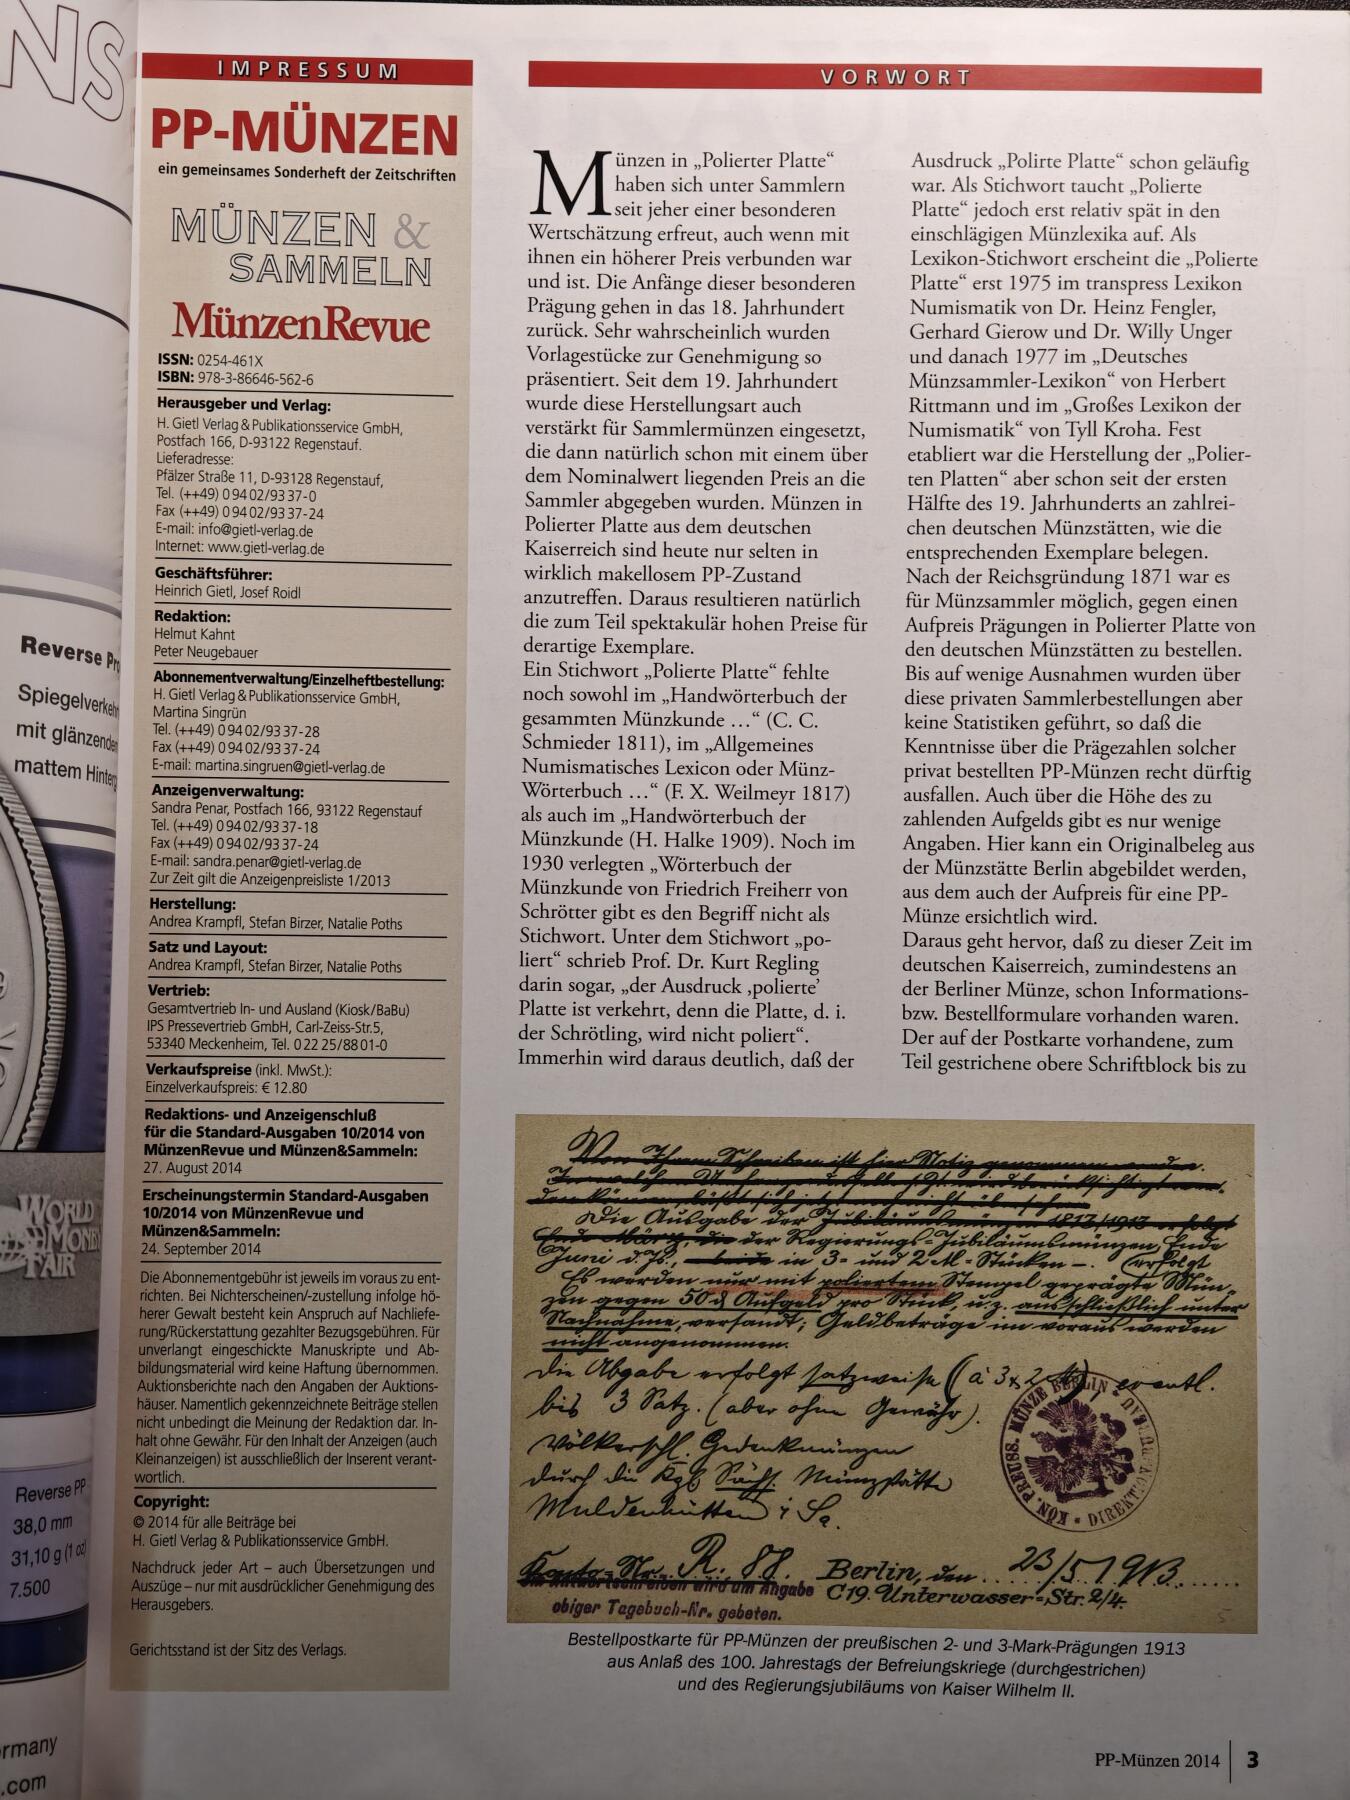 NS
Reverse Pr
Spiegelverkehr
mit glänzende
mattem Hinterg
WORLD
MONEY
FAIR
Reverse PP
38,0 mm
31,10 g (1 oz)
7.500
rmany
.com
IMPRESSUM
PP-MÜNZEN
ein gemeinsames Sonderheft der Zeitschriften
MÜNZEN &
SAMMELN
MünzenRevue
ISSN: 0254-461X
ISBN: 978-3-86646-562-6
Herausgeber und Verlag:
H. Gietl Verlag & Publikationsservice GmbH,
Postfach 166, D-93122 Regenstauf.
Lieferadresse:
Pfälzer Straße 11, D-93128 Regenstauf,
Tel. (++49) 0 94 02/93 37-0
Fax (++49) 0 94 02/93 37-24
E-mail: info@gietl-verlag.de
Internet: www.gietl-verlag.de
Geschäftsführer:
Heinrich Gietl, Josef Roidl
Redaktion:
Helmut Kahnt
Peter Neugebauer
Abonnementverwaltung/Einzelheftbestellung:
H. Gietl Verlag & Publikationsservice GmbH,
Martina Singrün
Tel. (++49) 0 94 02/93 37-28
Fax (++49) 0 94 02/93 37-24
E-mail: martina.singruen@gietl-verlag.de
Anzeigenverwaltung:
Sandra Penar, Postfach 166, 93122 Regenstauf
Tel. (++49) 0 94 02/93 37-18
Fax (++49) 0 94 02/93 37-24
E-mail: sandra.penar@gietl-verlag.de
Zur Zeit gilt die Anzeigenpreisliste 1/2013
Herstellung:
Andrea Krampfl, Stefan Birzer, Natalie Poths
Satz und Layout:
Andrea Krampfl, Stefan Birzer, Natalie Poths
Vertrieb:
Gesamtvertrieb In- und Ausland (Kiosk/BaBu)
IPS Pressevertrieb GmbH, Carl-Zeiss-Str.5,
53340 Meckenheim, Tel. 0 22 25/88 01-0
Verkaufspreise (inkl. MwSt.):
Einzelverkaufspreis: € 12.80
Redaktions- und Anzeigenschluß
für die Standard-Ausgaben 10/2014 von
MünzenRevue und Münzen&Sammeln:
27. August 2014
Erscheinungstermin Standard-Ausgaben
10/2014 von MünzenRevue und
Münzen&Sammeln:
24. September 2014
Die Abonnementgebühr ist jeweils im voraus zu ent-
richten. Bei Nichterscheinen/-zustellung infolge hö-
herer Gewalt besteht kein Anspruch auf Nachliefe-
rung/Rückerstattung gezahlter Bezugsgebühren. Für
unverlangt eingeschickte Manuskripte und Ab-
bildungsmaterial wird keine Haftung übernommen.
Auktionsberichte nach den Angaben der Auktions-
häuser. Namentlich gekennzeichnete Beiträge stellen
nicht unbedingt die Meinung der Redaktion dar. In-
halt ohne Gewähr. Für den Inhalt der Anzeigen (auch
Kleinanzeigen) ist ausschließlich der Inserent verant-
wortlich.
Copyright:
© 2014 für alle Beiträge bei
H. Gietl Verlag & Publikationsservice GmbH.
Nachdruck jeder Art – auch Übersetzungen und
Auszüge – nur mit ausdrücklicher Genehmigung des
Herausgebers.
Gerichtsstand ist der Sitz des Verlags.
VORWORT
Münzen in „Polierter Platte“
haben sich unter Sammlern
seit jeher einer besonderen
Wertschätzung erfreut, auch wenn mit
ihnen ein höherer Preis verbunden war
und ist. Die Anfänge dieser besonderen
Prägung gehen in das 18. Jahrhundert
zurück. Sehr wahrscheinlich wurden
Vorlagestücke zur Genehmigung so
präsentiert. Seit dem 19. Jahrhundert
wurde diese Herstellungsart auch
verstärkt für Sammlermünzen eingesetzt,
die dann natürlich schon mit einem über
dem Nominalwert liegenden Preis an die
Sammler abgegeben wurden. Münzen in
Polierter Platte aus dem deutschen
Kaiserreich sind heute nur selten in
wirklich makellosem PP-Zustand
anzutreffen. Daraus resultieren natürlich
die zum Teil spektakulär hohen Preise für
derartige Exemplare.
Ein Stichwort „Polierte Platte“ fehlte
noch sowohl im „Handwörterbuch der
gesammten Münzkunde …“ (C. C.
Schmieder 1811), im „Allgemeines
Numismatisches Lexicon oder Münz-
Wörterbuch …“ (F. X. Weilmeyr 1817)
als auch im „Handwörterbuch der
Münzkunde (H. Halke 1909). Noch im
1930 verlegten „Wörterbuch der
Münzkunde von Friedrich Freiherr von
Schrötter gibt es den Begriff nicht als
Stichwort. Unter dem Stichwort „po-
liert“ schrieb Prof. Dr. Kurt Regling
darin sogar, „der Ausdruck ‚polierte’
Platte ist verkehrt, denn die Platte, d. i.
der Schrötling, wird nicht poliert“.
Immerhin wird daraus deutlich, daß der
Ausdruck „Polirte Platte“ schon geläufig
war. Als Stichwort taucht „Polierte
Platte“ jedoch erst relativ spät in den
einschlägigen Münzlexika auf. Als
Lexikon-Stichwort erscheint die „Polierte
Platte“ erst 1975 im transpress Lexikon
Numismatik von Dr. Heinz Fengler,
Gerhard Gierow und Dr. Willy Unger
und danach 1977 im „Deutsches
Münzsammler-Lexikon“ von Herbert
Rittmann und im „Großes Lexikon der
Numismatik“ von Tyll Kroha. Fest
etabliert war die Herstellung der „Polier-
ten Platten“ aber schon seit der ersten
Hälfte des 19. Jahrhunderts an zahlrei-
chen deutschen Münzstätten, wie die
entsprechenden Exemplare belegen.
Nach der Reichsgründung 1871 war es
für Münzsammler möglich, gegen einen
Aufpreis Prägungen in Polierter Platte von
den deutschen Münzstätten zu bestellen.
Bis auf wenige Ausnahmen wurden über
diese privaten Sammlerbestellungen aber
keine Statistiken geführt, so daß die
Kenntnisse über die Prägezahlen solcher
privat bestellten PP-Münzen recht dürftig
ausfallen. Auch über die Höhe des zu
zahlenden Aufgelds gibt es nur wenige
Angaben. Hier kann ein Originalbeleg aus
der Münzstätte Berlin abgebildet werden,
aus dem auch der Aufpreis für eine PP-
Münze ersichtlich wird.
Daraus geht hervor, daß zu dieser Zeit im
deutschen Kaiserreich, zumindestens an
der Berliner Münze, schon Informations-
bzw. Bestellformulare vorhanden waren.
Der auf der Postkarte vorhandene, zum
Teil gestrichene obere Schriftblock bis zu
Von Ihrem Schreiben ist hier Notiz genommen worden.
Die Ausgabe der Jubiläumsmünzen 1813/1913 erfolgt
Ende März, die der Regierungs-Jubiläumsmünzen, Ende
Juni d. Js., beide in 3- und 2 M-Stücken –. (erfolgt
Es werden nur mit poliertem Stempel geprägte Mün-
zen gegen 50 ₰ Aufgeld pro Stück, u. z. ausschließlich unter
Nachnahme, versandt; Geldbeträge im voraus werden
nicht angenommen.
Die Abgabe erfolgt satzweise (à 3 x 2 M), eventl.
bis 3 Satz. (aber ohne Gewähr).
Völkerschl. Gedenkmünzen
durch die Kgl. Sächs. Münzstätte
Muldenhütten i. Sa.
KÖN. PREUSS. MÜNZE BERLIN
Konto-Nr. R. 88. Berlin, den 23/5. 1913.
C19. Unterwasser-Str. 2/4.
Im Antwortschreiben wird um Angabe
obiger Tagebuch-Nr. gebeten.
Bestellpostkarte für PP-Münzen der preußischen 2- und 3-Mark-Prägungen 1913
aus Anlaß des 100. Jahrestags der Befreiungskriege (durchgestrichen)
und des Regierungsjubiläums von Kaiser Wilhelm II.
PP-Münzen 2014 3